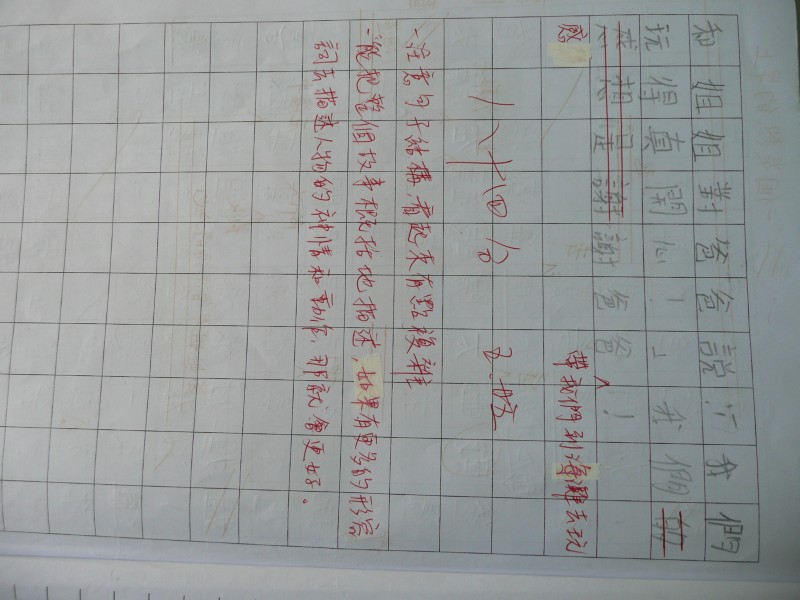 和姐姐對爸爸說：「我們
玩得真開心！」我們
感想是謝謝爸爸！
帶我們到海灘去玩
感
八十四分
-注意句子結構,看起來有點複雜
-能把整個故事概括地描述,如果有更多的形容
詞去描述人物的神情和動作,那就會更好。